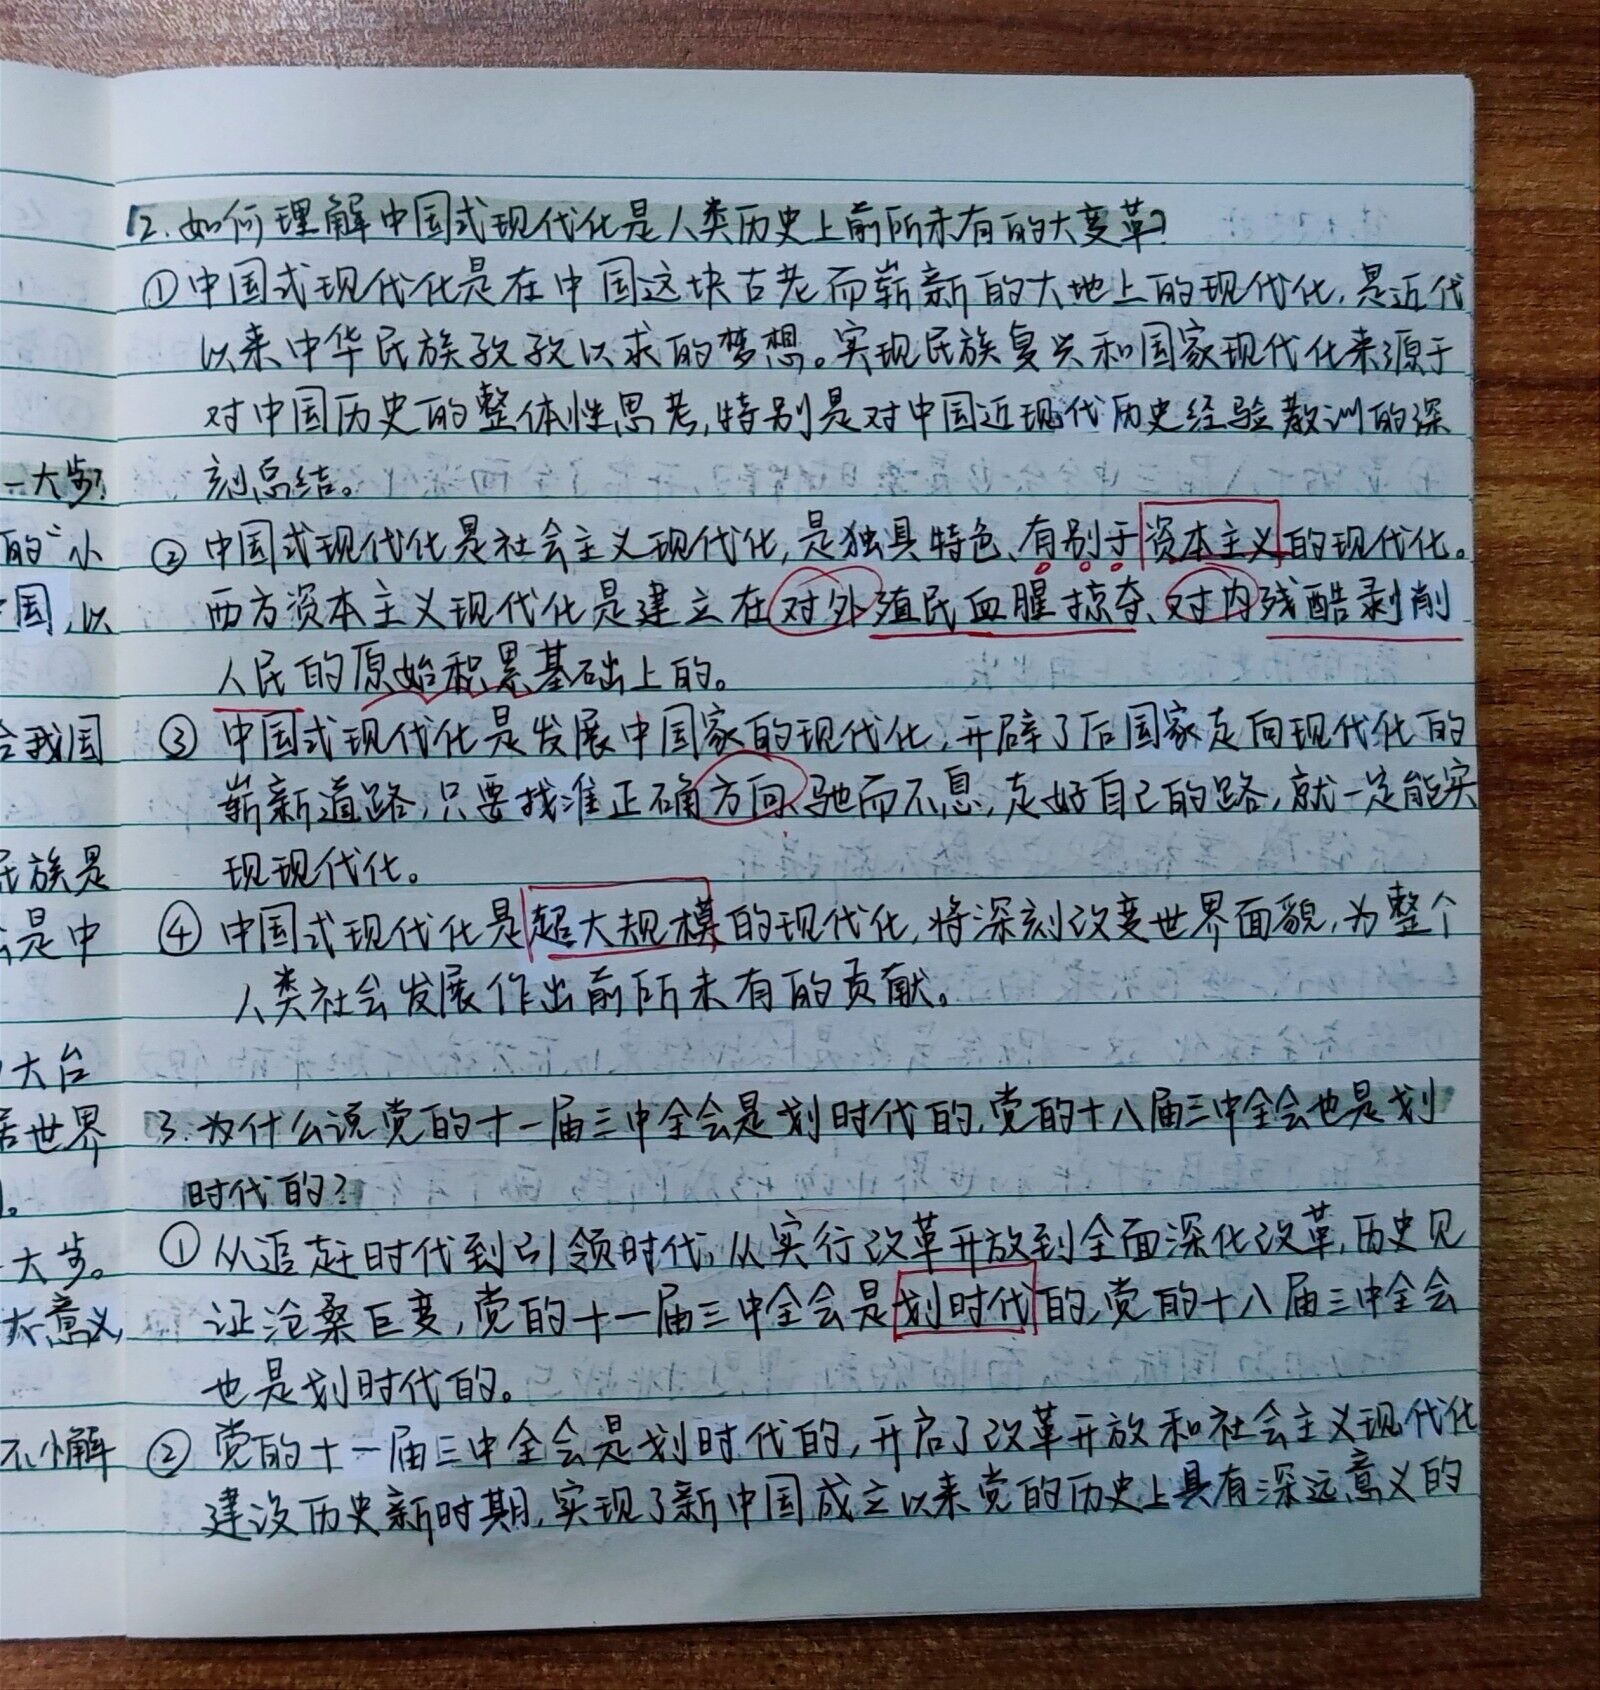 一大步?
的"小
国,以
我国
民族是
是中
大台
世界
大步。
大意义,
不小懈
2.如何理解中国式现代化是人类历史上前所未有的大变革?
①中国式现代化是在中国这块古老而崭新的大地上的现代化,是近代
以来中华民族孜孜以求的梦想。实现民族复兴和国家现代化来源于
对中国历史的整体性思考,特别是对中国近现代历史经验教训的深
刻总结。
②中国式现代化是社会主义现代化,是独具特色、有别于资本主义的现代化。
西方资本主义现代化是建立在对外殖民血腥掠夺、对内残酷剥削
人民的原始积累基础上的。
③中国式现代化是发展中国家的现代化,开辟了后国家走向现代化的
崭新道路,只要找准正确方向、驰而不息,走好自己的路,就一定能实
现现代化。
④中国式现代化是超大规模的现代化,将深刻改变世界面貌,为整个
人类社会发展作出前所未有的贡献。
3.为什么说党的十一届三中全会是划时代的,党的十八届三中全会也是划
时代的?
①从追赶时代到引领时代,从实行改革开放到全面深化改革,历史见
证沧桑巨变,党的十一届三中全会是划时代的,党的十八届三中全会
也是划时代的。
②党的十一届三中全会是划时代的,开启了改革开放和社会主义现代化
建设历史新时期,实现了新中国成立以来党的历史上具有深远意义的